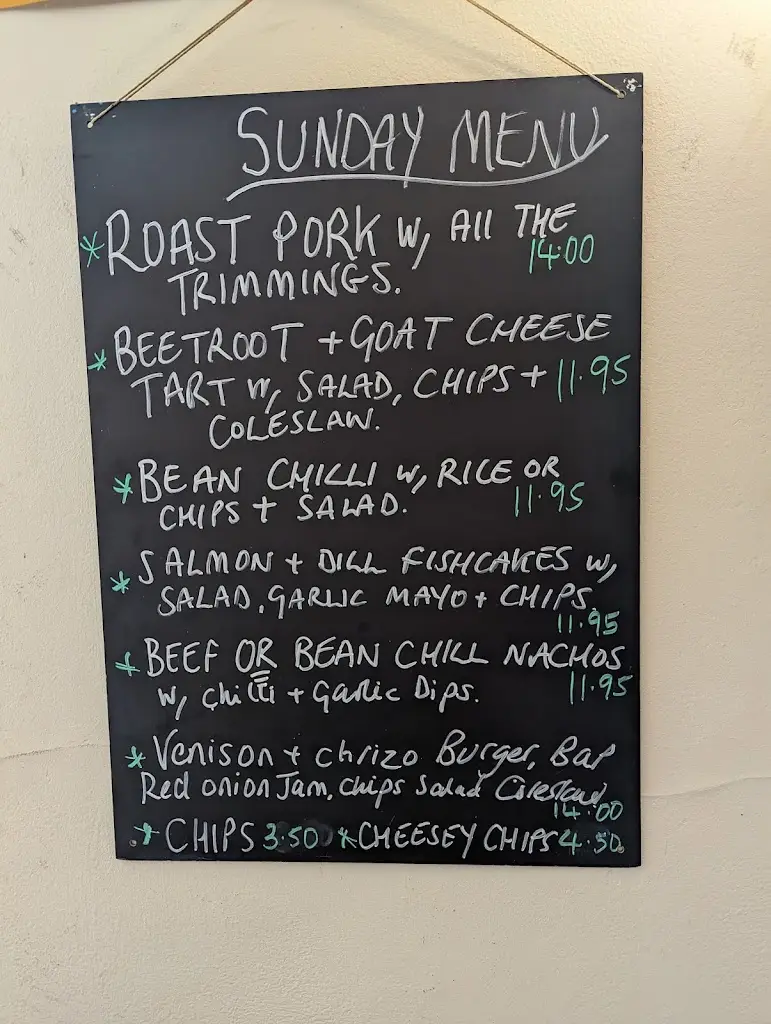 SUNDAY MENU
* ROAST PORK W, All THE
TRIMMINGS. 14.00
* BEETROOT + GOAT CHEESE
TART W, SALAD, CHIPS + 11.95
COLESLAW.
* BEAN CHILLI W, RICE OR
CHIPS + SALAD. 11.95
* SALMON + DILL FISHCAKES W,
SALAD, GARLIC MAYO + CHIPS.
11.95
* BEEF OR BEAN CHILL NACHOS
W, chilli + Garlic Dips. 11.95
* Venison + chrizo Burger, Bap
Red onion Jam, chips Salad Coleslaw
14.00
* CHIPS 3.50 * CHEESEY CHIPS 4.50